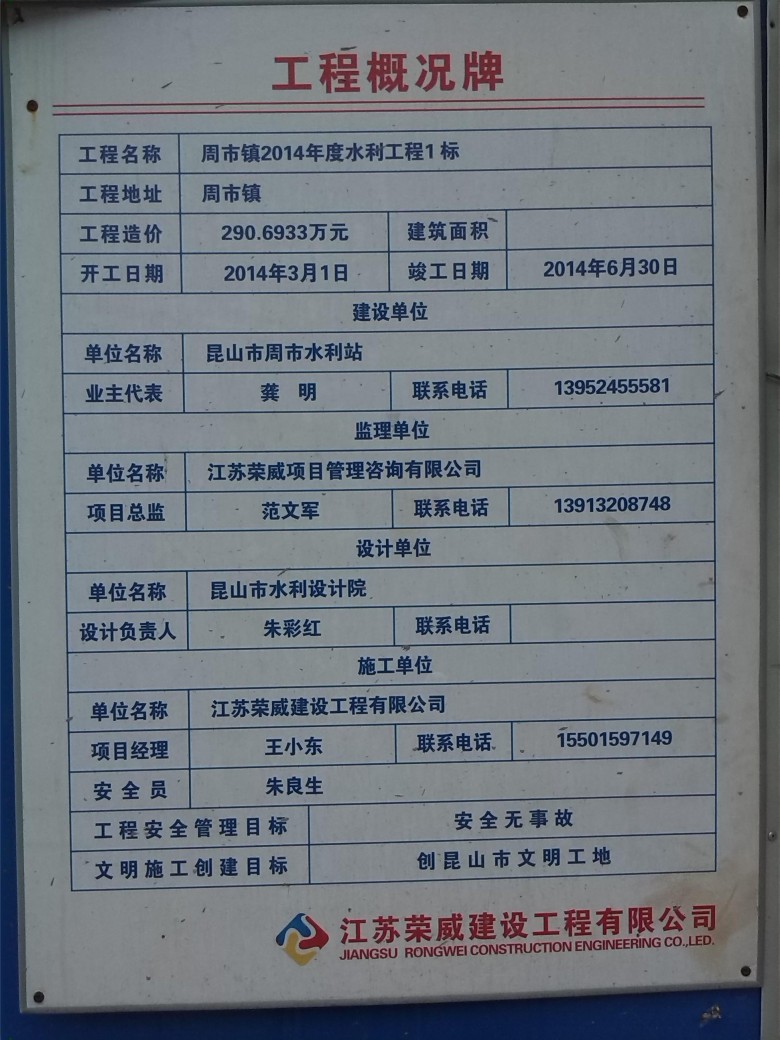 工程概况牌
工程名称 周市镇2014年度水利工程1标
工程地址 周市镇
工程造价 290.6933万元 建筑面积
开工日期 2014年3月1日 竣工日期 2014年6月30日
建设单位
单位名称 昆山市周市水利站
业主代表 龚 明 联系电话 13952455581
监理单位
单位名称 江苏荣威项目管理咨询有限公司
项目总监 范文军 联系电话 13913208748
设计单位
单位名称 昆山市水利设计院
设计负责人 朱彩红 联系电话
施工单位
单位名称 江苏荣威建设工程有限公司
项目经理 王小东 联系电话 15501597149
安全员 朱良生
工程安全管理目标 安全无事故
文明施工创建目标 创昆山市文明工地
江苏荣威建设工程有限公司
JIANGSU RONGWEI CONSTRUCTION ENGINEERING CO.,LED.